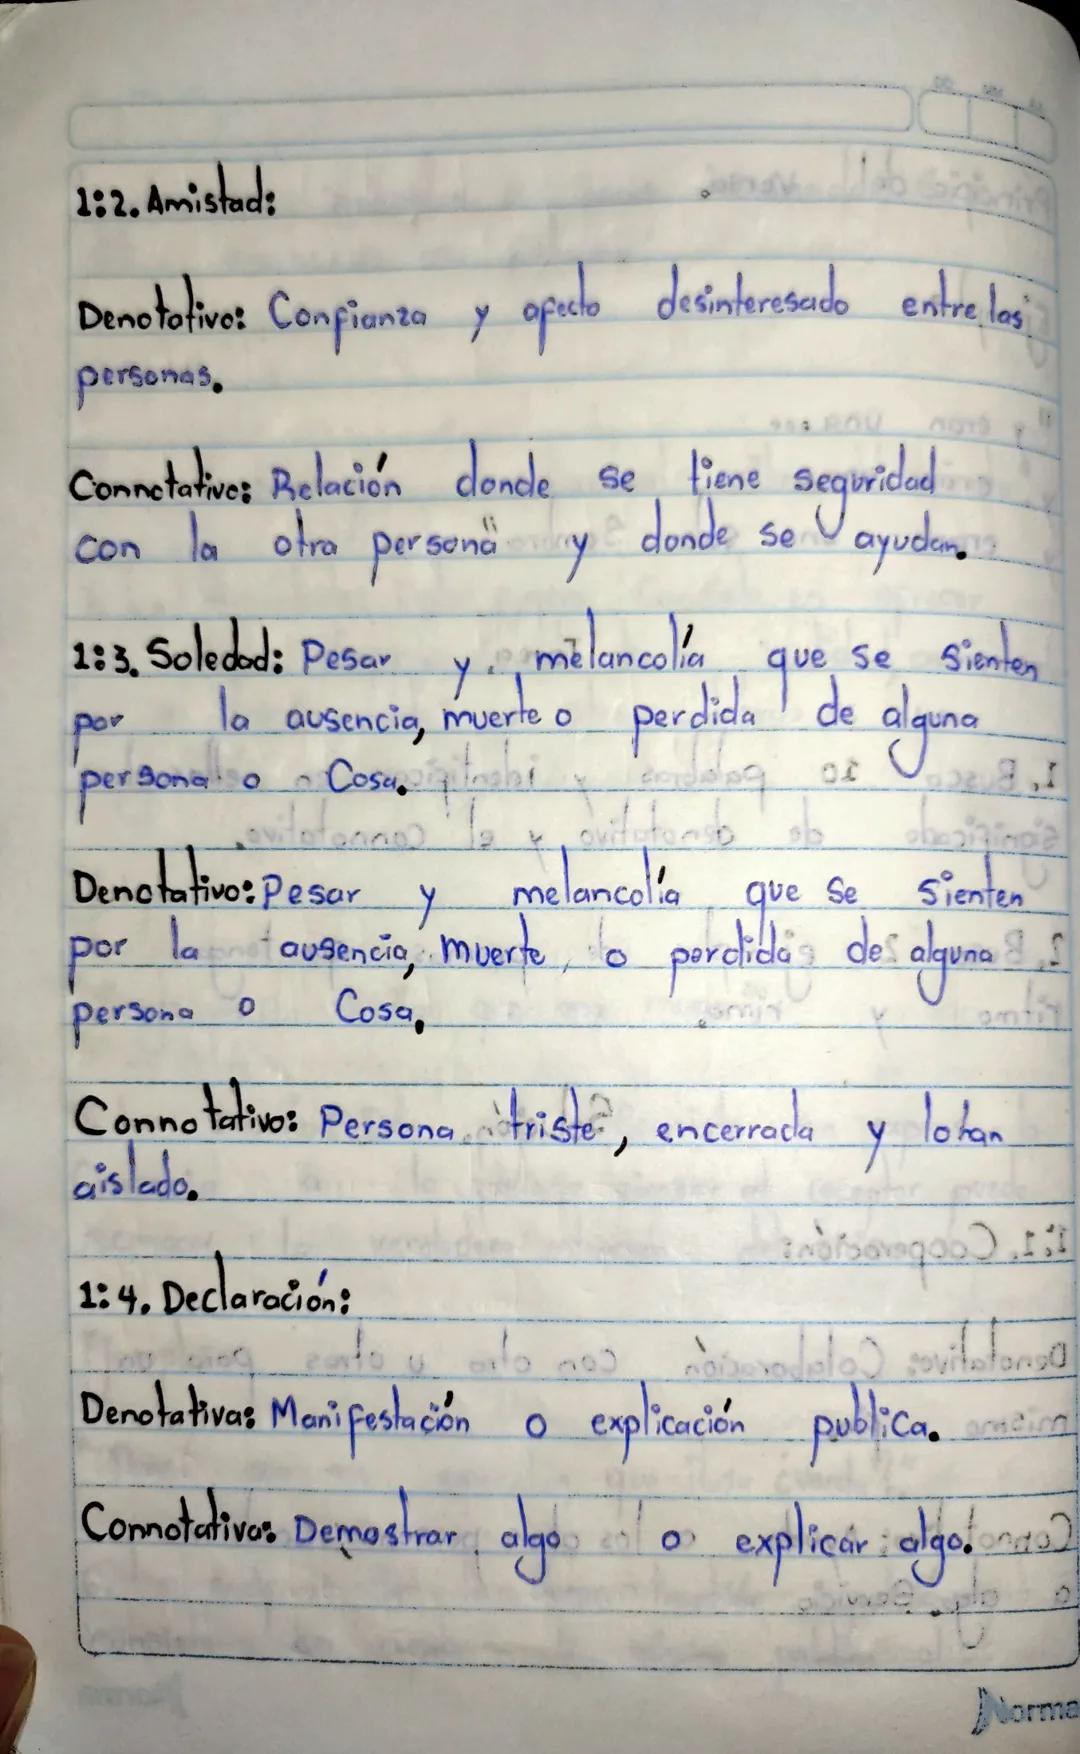 1:2. Amistad:
Denotativo: Confianza y afecto desinteresado entre las
personas.
Connotativo: Relación donde se tiene seguridad
con la otra persona y donde se ayudan.
1:3. Soledad: Pesar y melancolía que se sienten
por la ausencia, muerte o perdida de alguna
persona o Cosa.
Denotativo: Pesar y melancolía que se sienten
por la ausencia, muerte, o perdida de alguna
persona o Cosa.
Connotativo: Persona triste, encerrada y
aislado.
1:4. Declaración:
Denotativa: Manifestación o explicación publica.
Connotativa: Demostrar algo o explicar algo.
Norma